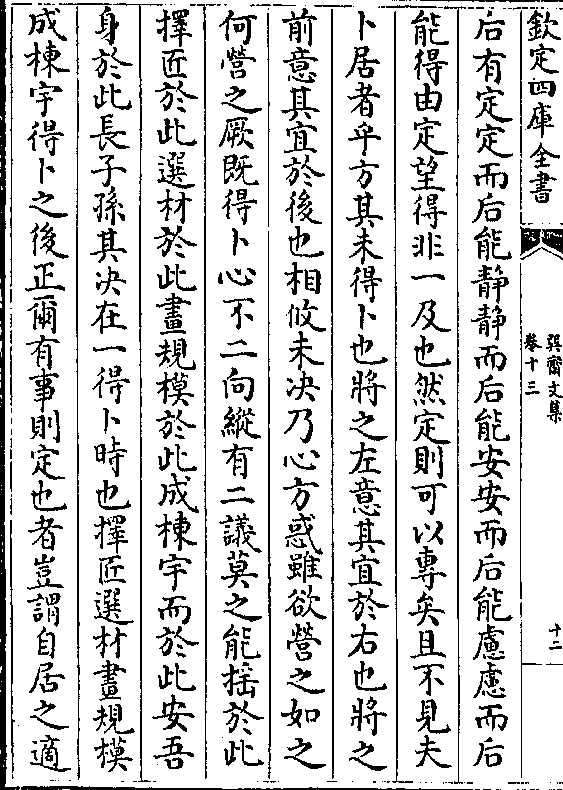 欽定四庫全書
巽齋文集
卷十三
十二
后有定定而后能静静而后能安安而后能慮慮而后
能得由定望得非一及也然定則可以專矣且不見夫
卜居者乎方其未得卜也將之左意其宜於右也將之
前意其宜於後也相攸未决乃心方惑雖欲營之如之
何營之厥既得卜心不二向縱有二議莫之能揺於此
擇匠於此選材於此畫規模於此成棟宇而於此安吾
身於此長子孫其决在一得卜時也擇匠選材畫規模
成棟宇得卜之後正爾有事則定也者豈謂自居之適